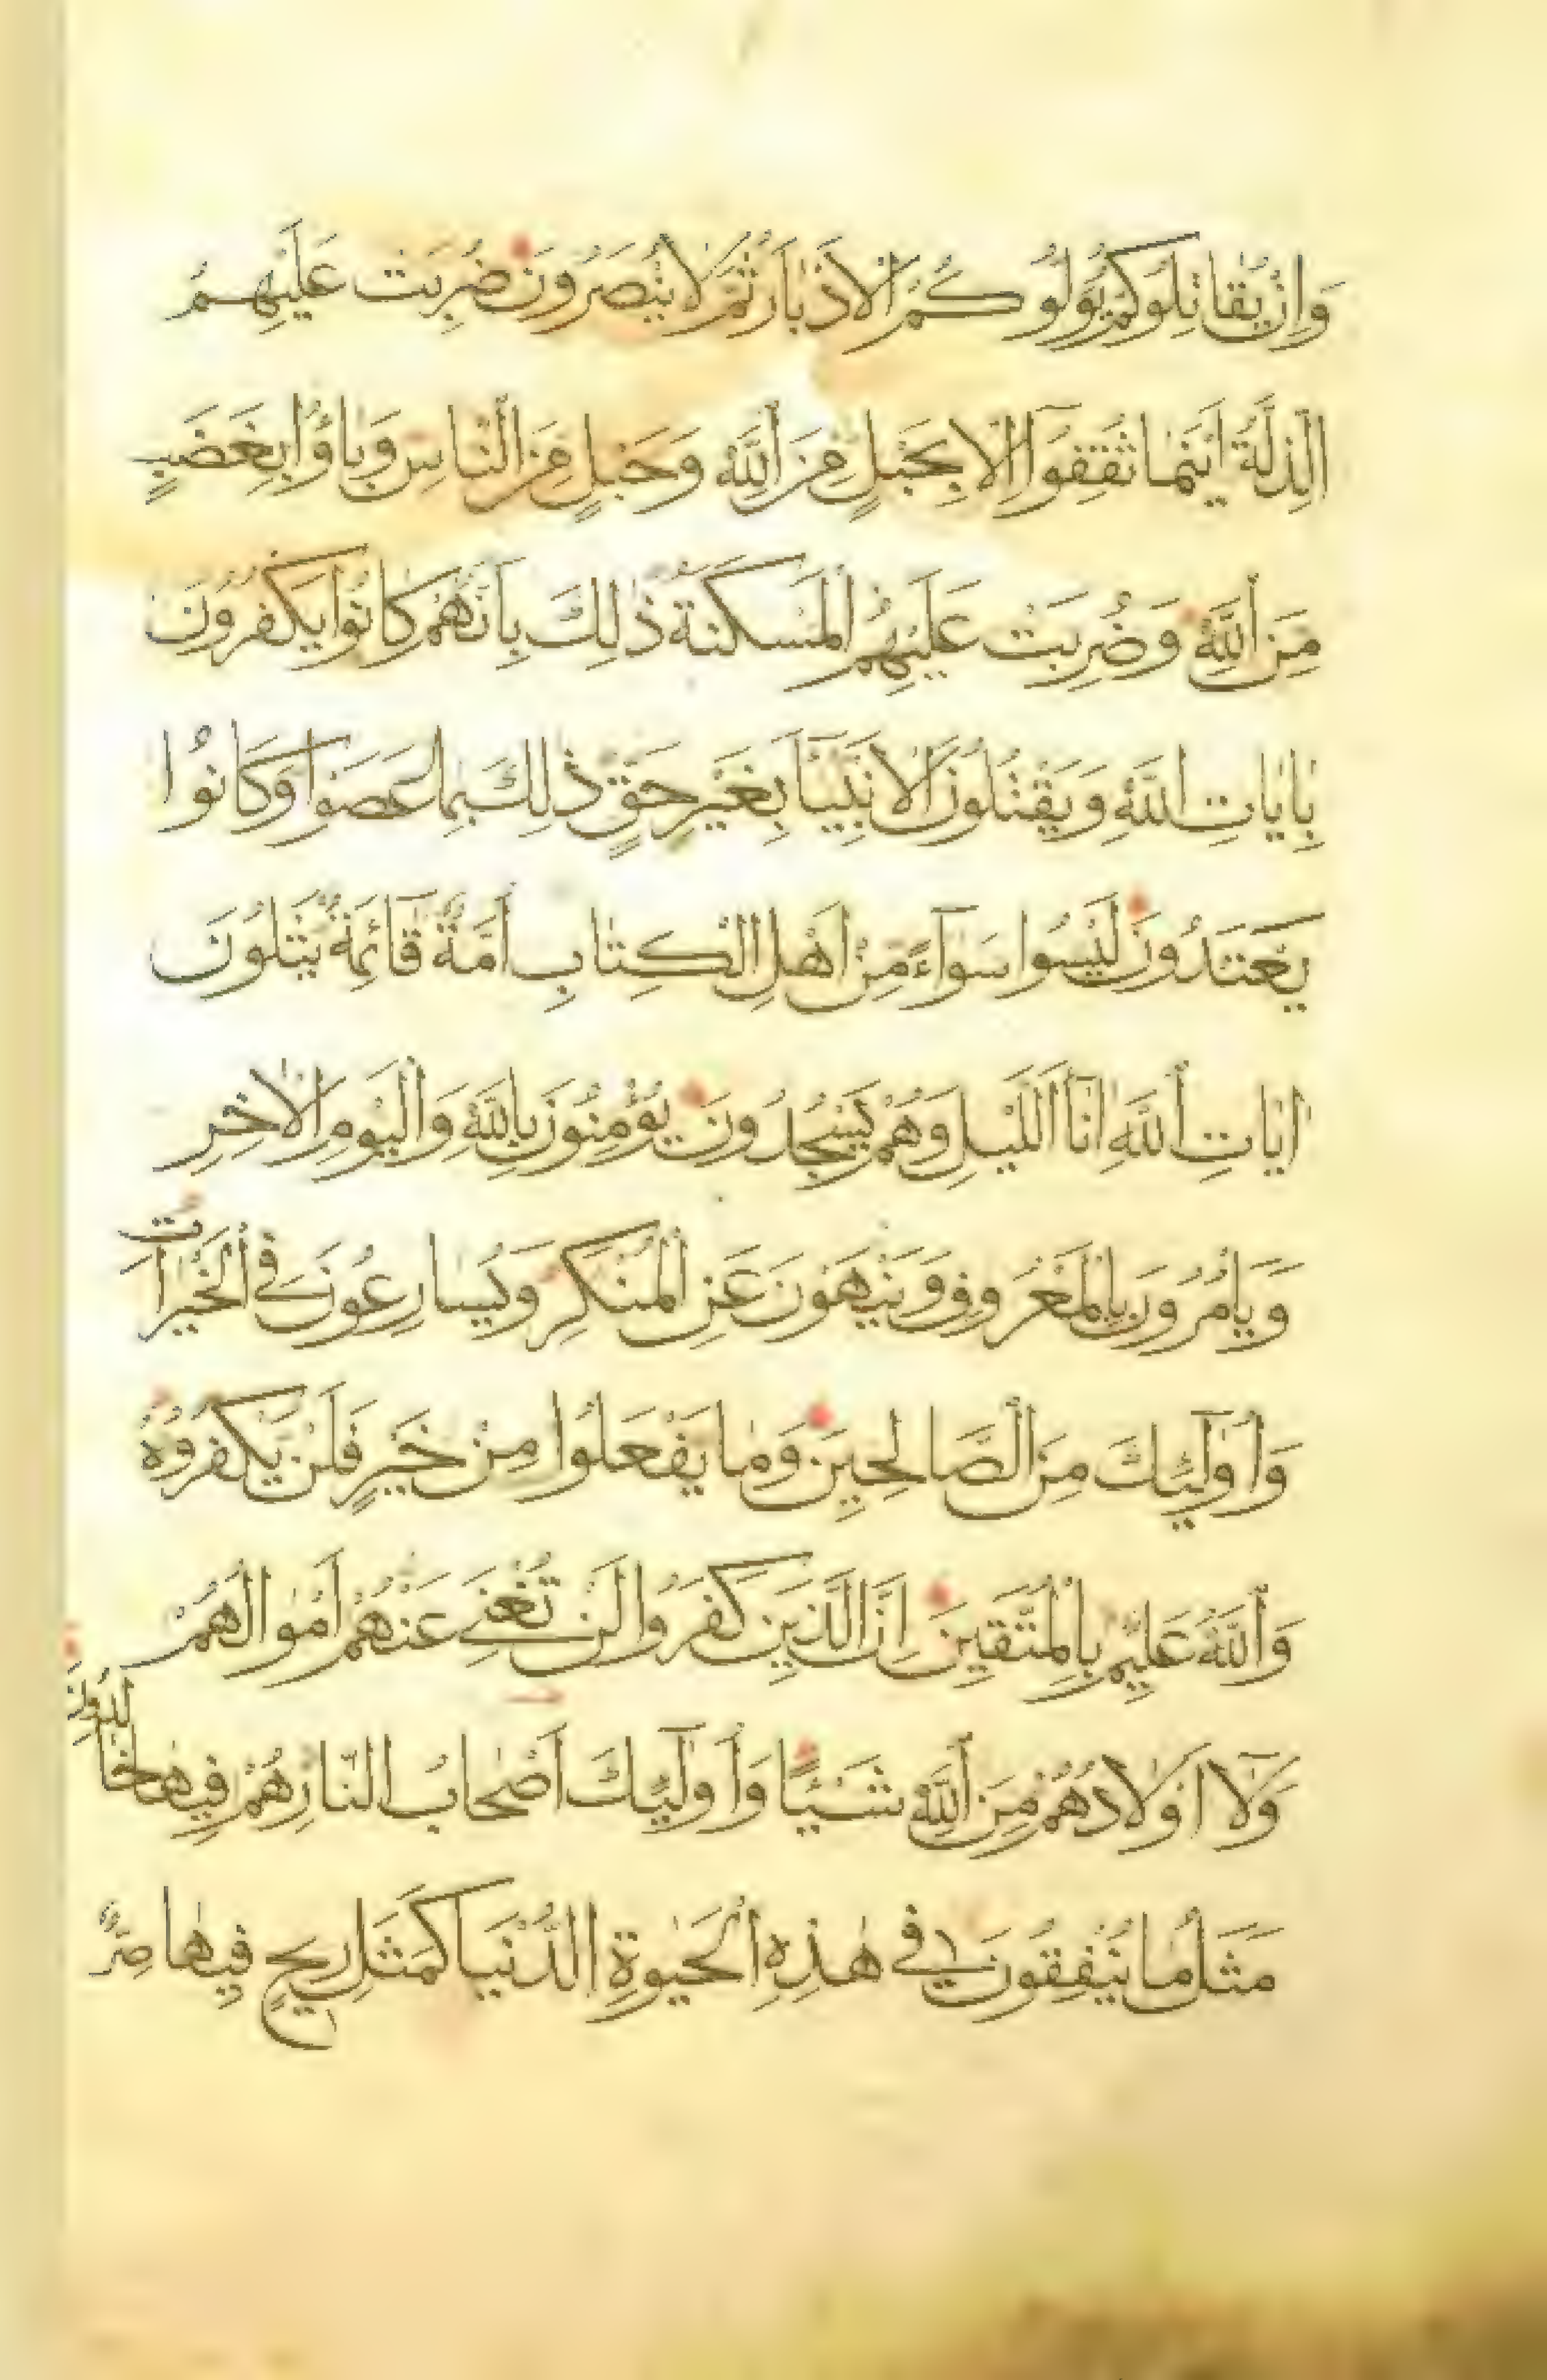 وَاِنْ يُقَاتِلُوكُمْ يُوَلُّوكُمُ الْاَدْبَارَ ثُمَّ لَا يُنْصَرُونَ ضُرِبَتْ عَلَيْهِمُ
الذِّلَّةُ اَيْنَمَا ثُقِفُوٓا اِلَّا بِحَبْلٍ مِنَ اللّٰهِ وَحَبْلٍ مِنَ النَّاسِ وَبَاؤُا بِغَضَبٍ
مِنَ اللّٰهِ وَضُرِبَتْ عَلَيْهِمُ الْمَسْكَنَةُ ذٰلِكَ بِاَنَّهُمْ كَانُوا يَكْفُرُونَ
بِاٰيَاتِ اللّٰهِ وَيَقْتُلُونَ الْاَنْبِيَآءَ بِغَيْرِ حَقٍّ ذٰلِكَ بِمَا عَصَوْا وَكَانُوا
يَعْتَدُونَ لَيْسُوا سَوَآءً مِنْ اَهْلِ الْكِتَابِ اُمَّةٌ قَآئِمَةٌ يَتْلُونَ
اٰيَاتِ اللّٰهِ اٰنَآ الَّيْلِ وَهُمْ يَسْجُدُونَ يُؤْمِنُونَ بِاللّٰهِ وَالْيَوْمِ الْاٰخِرِ
وَيَاْمُرُونَ بِالْمَعْرُوفِ وَيَنْهَوْنَ عَنِ الْمُنْكَرِ وَيُسَارِعُونَ فِي الْخَيْرَاتِ
وَاُولٰٓئِكَ مِنَ الصَّالِحِينَ وَمَا يَفْعَلُوا مِنْ خَيْرٍ فَلَنْ يُكْفَرُوهُ
وَاللّٰهُ عَلِيمٌ بِالْمُتَّقِينَ اِنَّ الَّذِينَ كَفَرُوا لَنْ تُغْنِيَ عَنْهُمْ اَمْوَالُهُمْ
وَلَآ اَوْلَادُهُمْ مِنَ اللّٰهِ شَيْئًا وَاُولٰٓئِكَ اَصْحَابُ النَّارِ هُمْ فِيهَا خَالِدُونَ
مَثَلُ مَا يُنْفِقُونَ فِي هٰذِهِ الْحَيٰوةِ الدُّنْيَا كَمَثَلِ رِيحٍ فِيهَا صِرٌّ